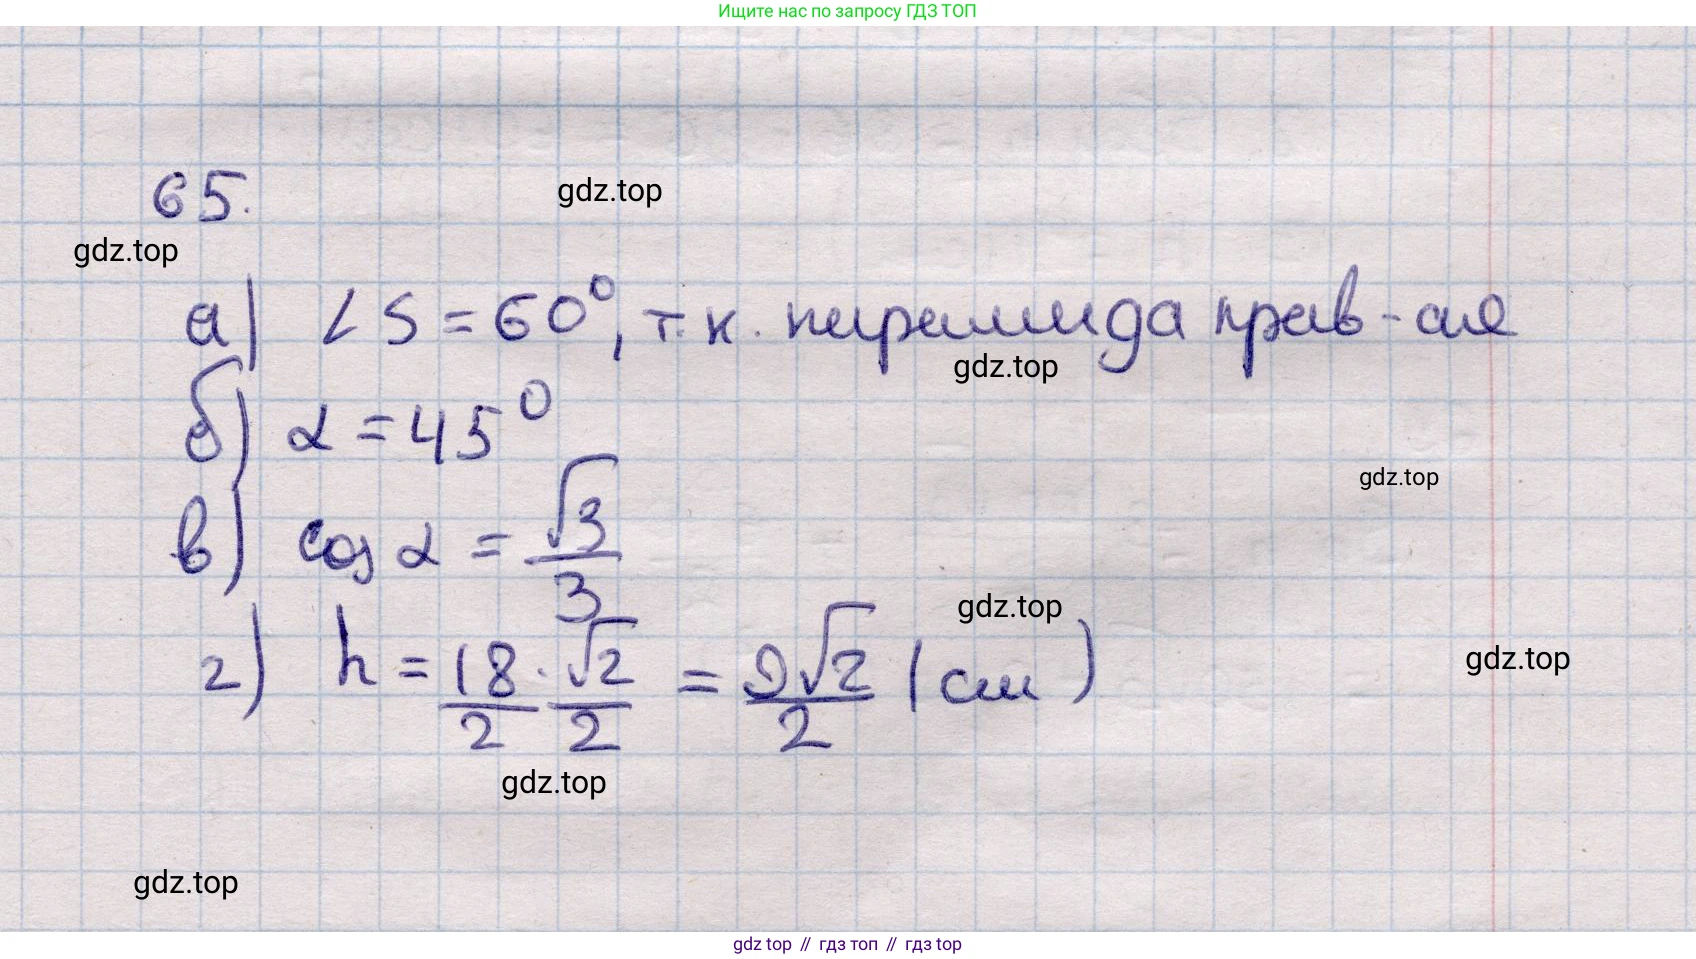 Ищите нас по запросу ГДЗ ТОП
65.
gdz.top
gdz.top
а) ∠S = 60⁰, т.к. пирамида прав-ая
gdz.top
б) α = 45⁰
gdz.top
в) cos α = √3/3
gdz.top
г) h = 18/2 · √2/2 = 9√2/2 (см)
gdz.top
gdz.top
gdz.top
gdz top // гдз топ // гдз top